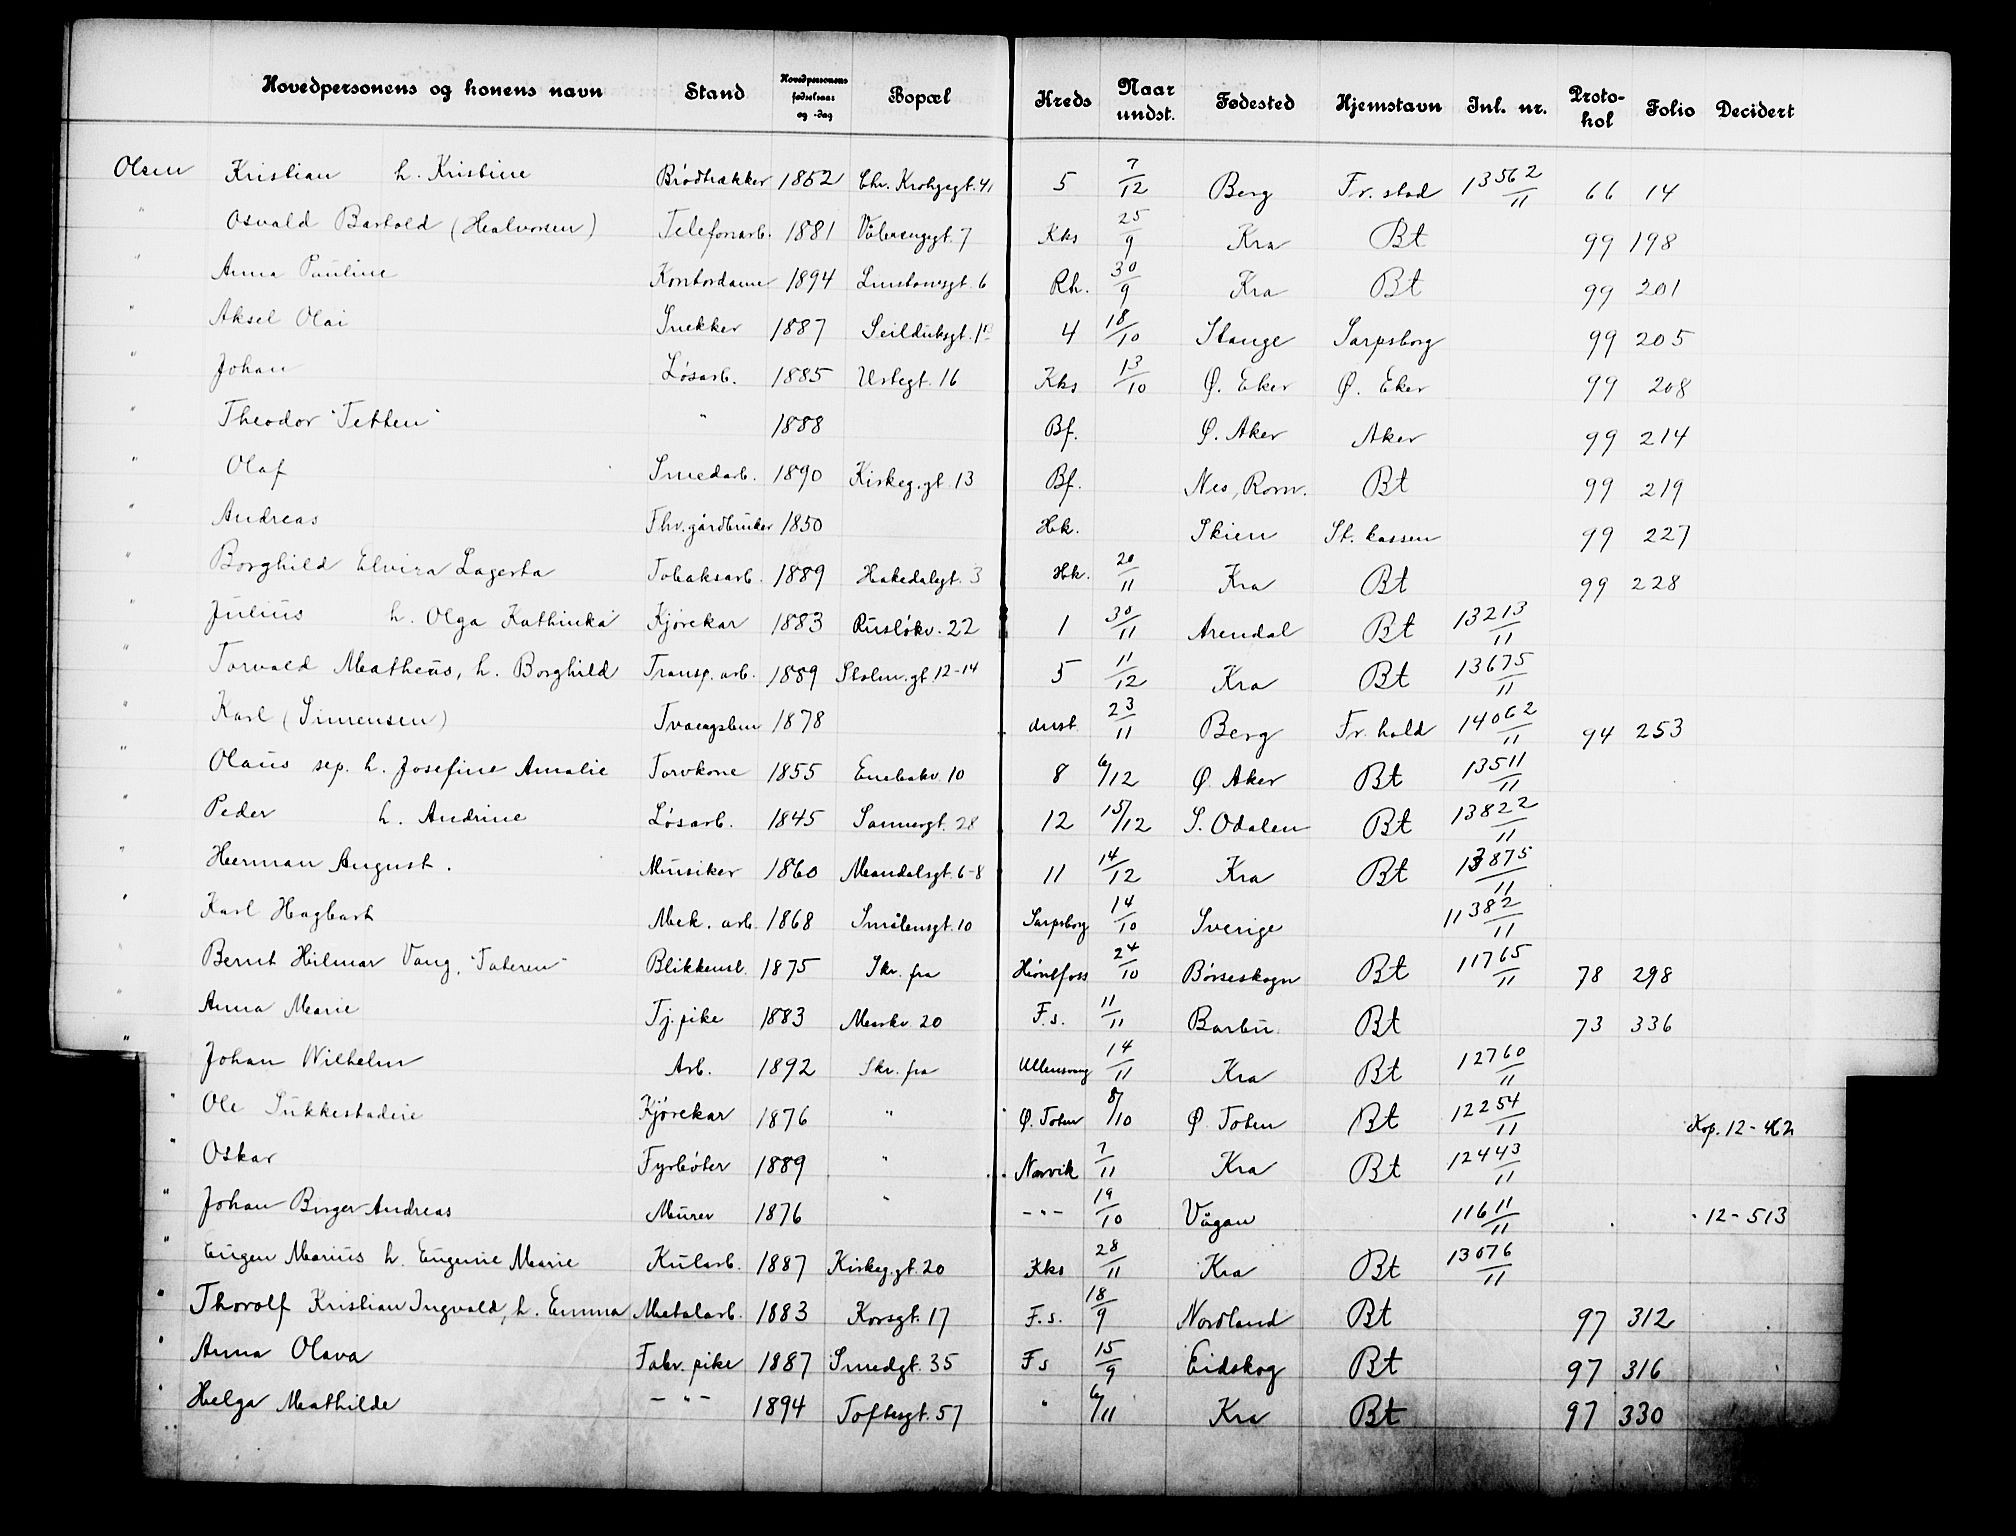 Hovedpersonens og konens navn Stand Hovedpersonens fødselsaar og -dag Bopæl Kreds Naar undst. Fødested Hjemstavn Inl. nr. Proto-kol Folio Decidert
Olsen Kristian h. Kristine Brødtrækker 1852 Chr. Krohgsgt. 41 5 7/12 Berg Fr. stad 13562/11 66 14
" Osvald Bartold (Halvorsen) Telefonarb. 1881 Vålerenggt. 7 Kks 25/9 Kra Bt 99 198
" Anna Pauline Kontordame 1894 6 Rh. 30/9 Kra Bt 99 201
" Aksel Olai Snekker 1887 Seilduksgt. 4 18/10 Stange Sarpsborg 99 205
" Johan Løsarb. 1885 Urtegt. 16 Kks 13/10 Ø. Eker Ø. Eker 99 208
" Theodor "Tetten" " 1888 Bf. Ø. Aker Aker 99 214
" Olaf Smedarb. 1890 Kirkeg.gt. 13 Bf. Nes, Rom. Bt 99 219
" Andreas Fhv. gårdbruker 1850 Hk. Skien St. kassen 99 227
" Borghild Elvira Lagerta Tobaksarb. 1889 Hakedalsgt. 3 Hk. 20/11 Kra Bt 99 228
" Julius h. Olga Kathinka Kjørekar 1883 Rusløkv. 22 1 30/11 Arendal Bt 13213/11
" Torvald Matheus, h. Borghild Transp. arb. 1889 Stolm.gt. 12-14 5 11/12 Kra Bt 13675/11
" Karl (Simensen) Tvangslem 1878 anst. 23/11 Berg Fr. hald 14062/11 94 253
" Olaus sep. h. Josefine Amalie Torvkone 1855 Enebakv. 10 8 6/12 Ø. Aker Bt 13511/11
" Peder h. Andrine Løsarb. 1845 Sannergt. 28 12 15/12 S. Odalen Bt 13822/11
" Herman August. Musiker 1860 Mandalsgt. 6-8 11 14/12 Kra Bt 13875/11
" Karl Hagbart Mek. arb. 1868 Smålensgt. 10 Sarpsborg 14/10 Sverige 11382/11
" Bernt Hilmar Vang, "Tateren" Blikkensl. 1875 Skr. fra Hønefoss 24/10 Børseskogn Bt 11765/11 78 298
" Anna Marie Tj. pike 1883 Maskv. 20 F.s. 11/11 Barbu Bt 73 336
" Johan Wilhelm Arb. 1892 Skr. fra Ullensvang 14/11 Kra Bt 12760/11
" Ole Sukkestadeie Kjørekar 1876 " Ø. Toten 8/10 Ø. Toten Bt 12254/11 Kop. 12-462
" Oskar Fyrbøter 1889 " Narvik 7/11 Kra Bt 12443/11
" Johan Birger Andreas Murer 1876 " -"- 19/10 Vågan 11611/11 " 12-513
" Eugen Marius h. Eugenie Marie Kularb. 1887 Kirkeg.gt. 20 Kks 28/11 Kra Bt 13076/11
" Thorolf Kristian Ingvald, h. Emma Metalarb. 1883 Korsgt. 17 F.s. 18/9 Nordland Bt 97 312
" Anna Olava Fabr. pike 1887 Smedgt. 35 Fs 15/9 Eidskog Bt 97 316
" Helga Mathilde -"- 1894 Toftesgt. 57 " 6/11 Kra Bt 97 330